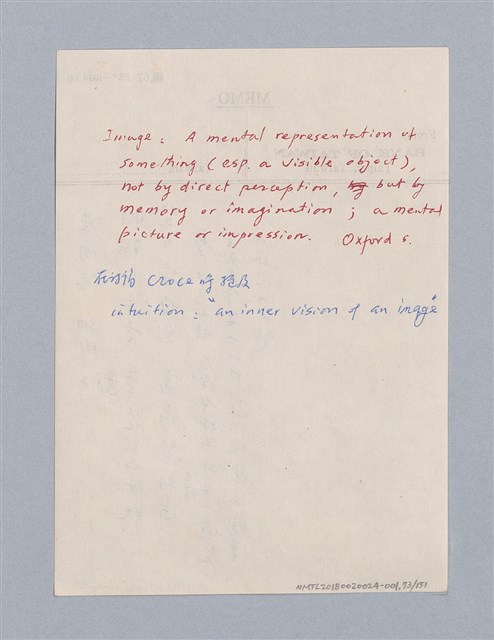 Image : A mental representation of
something (esp. a visible object),
not by direct perception, by but by
memory or imagination ; a mental
picture or impression. Oxford s.
在討論 Croce 時提及
intuition : "an inner vision of an image"
NMTL20180020024-001,73/151
MEMO
BANK OF TAIWAN